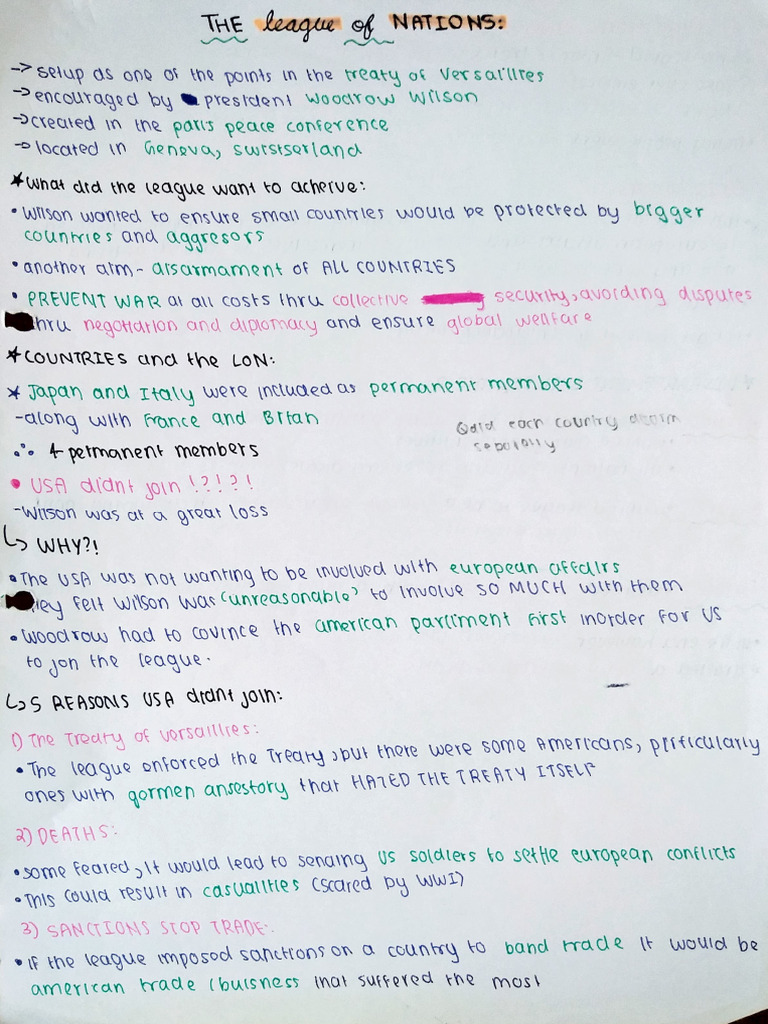 THE league of NATIONS:
-> setup as one of the points in the treaty of Versaillres
-> encouraged by president Woodrow Wilson
-> created in the paris peace conference
-> located in Geneva, swrstserland
* What did the league want to acherve:
• Wilson wanted to ensure small countries would be protected by bigger
countries and aggresors
• another aim - disarmament of ALL COUNTRIES
• PREVENT WAR at all costs thru collective security, avording disputes
thru negotiation and diplomacy and ensure global welfare
* COUNTRIES and the LON:
* Japan and Italy were included as permanent members
- along with France and Britan
∴ 4 permanent members
Q did each country disarm
seperatly
• USA didnt join !?!?!
- Wilson was at a great loss
↳ WHY?!
• The USA was not wanting to be involved with european affairs
they felt Wilson was (unreasonable) to involve SO MUCH with them
• Woodrow had to covince the american parliment first inorder for US
to jon the league.
↳ 5 REASONS USA didnt join:
1) The Treaty of versaillres:
• The league enforced the Treaty, but there were some Americans, prticularly
ones with german ansestory that HATED THE TREATY ITSELF
2) DEATHS:
• some feared, it would lead to sending US soldiers to settle european conflicts
• This could result in casualities (scared by WWI)
3) SANCTIONS STOP TRADE:
• if the league imposed sanctions on a country to band trade it would be
american trade (buisness that suffered the most